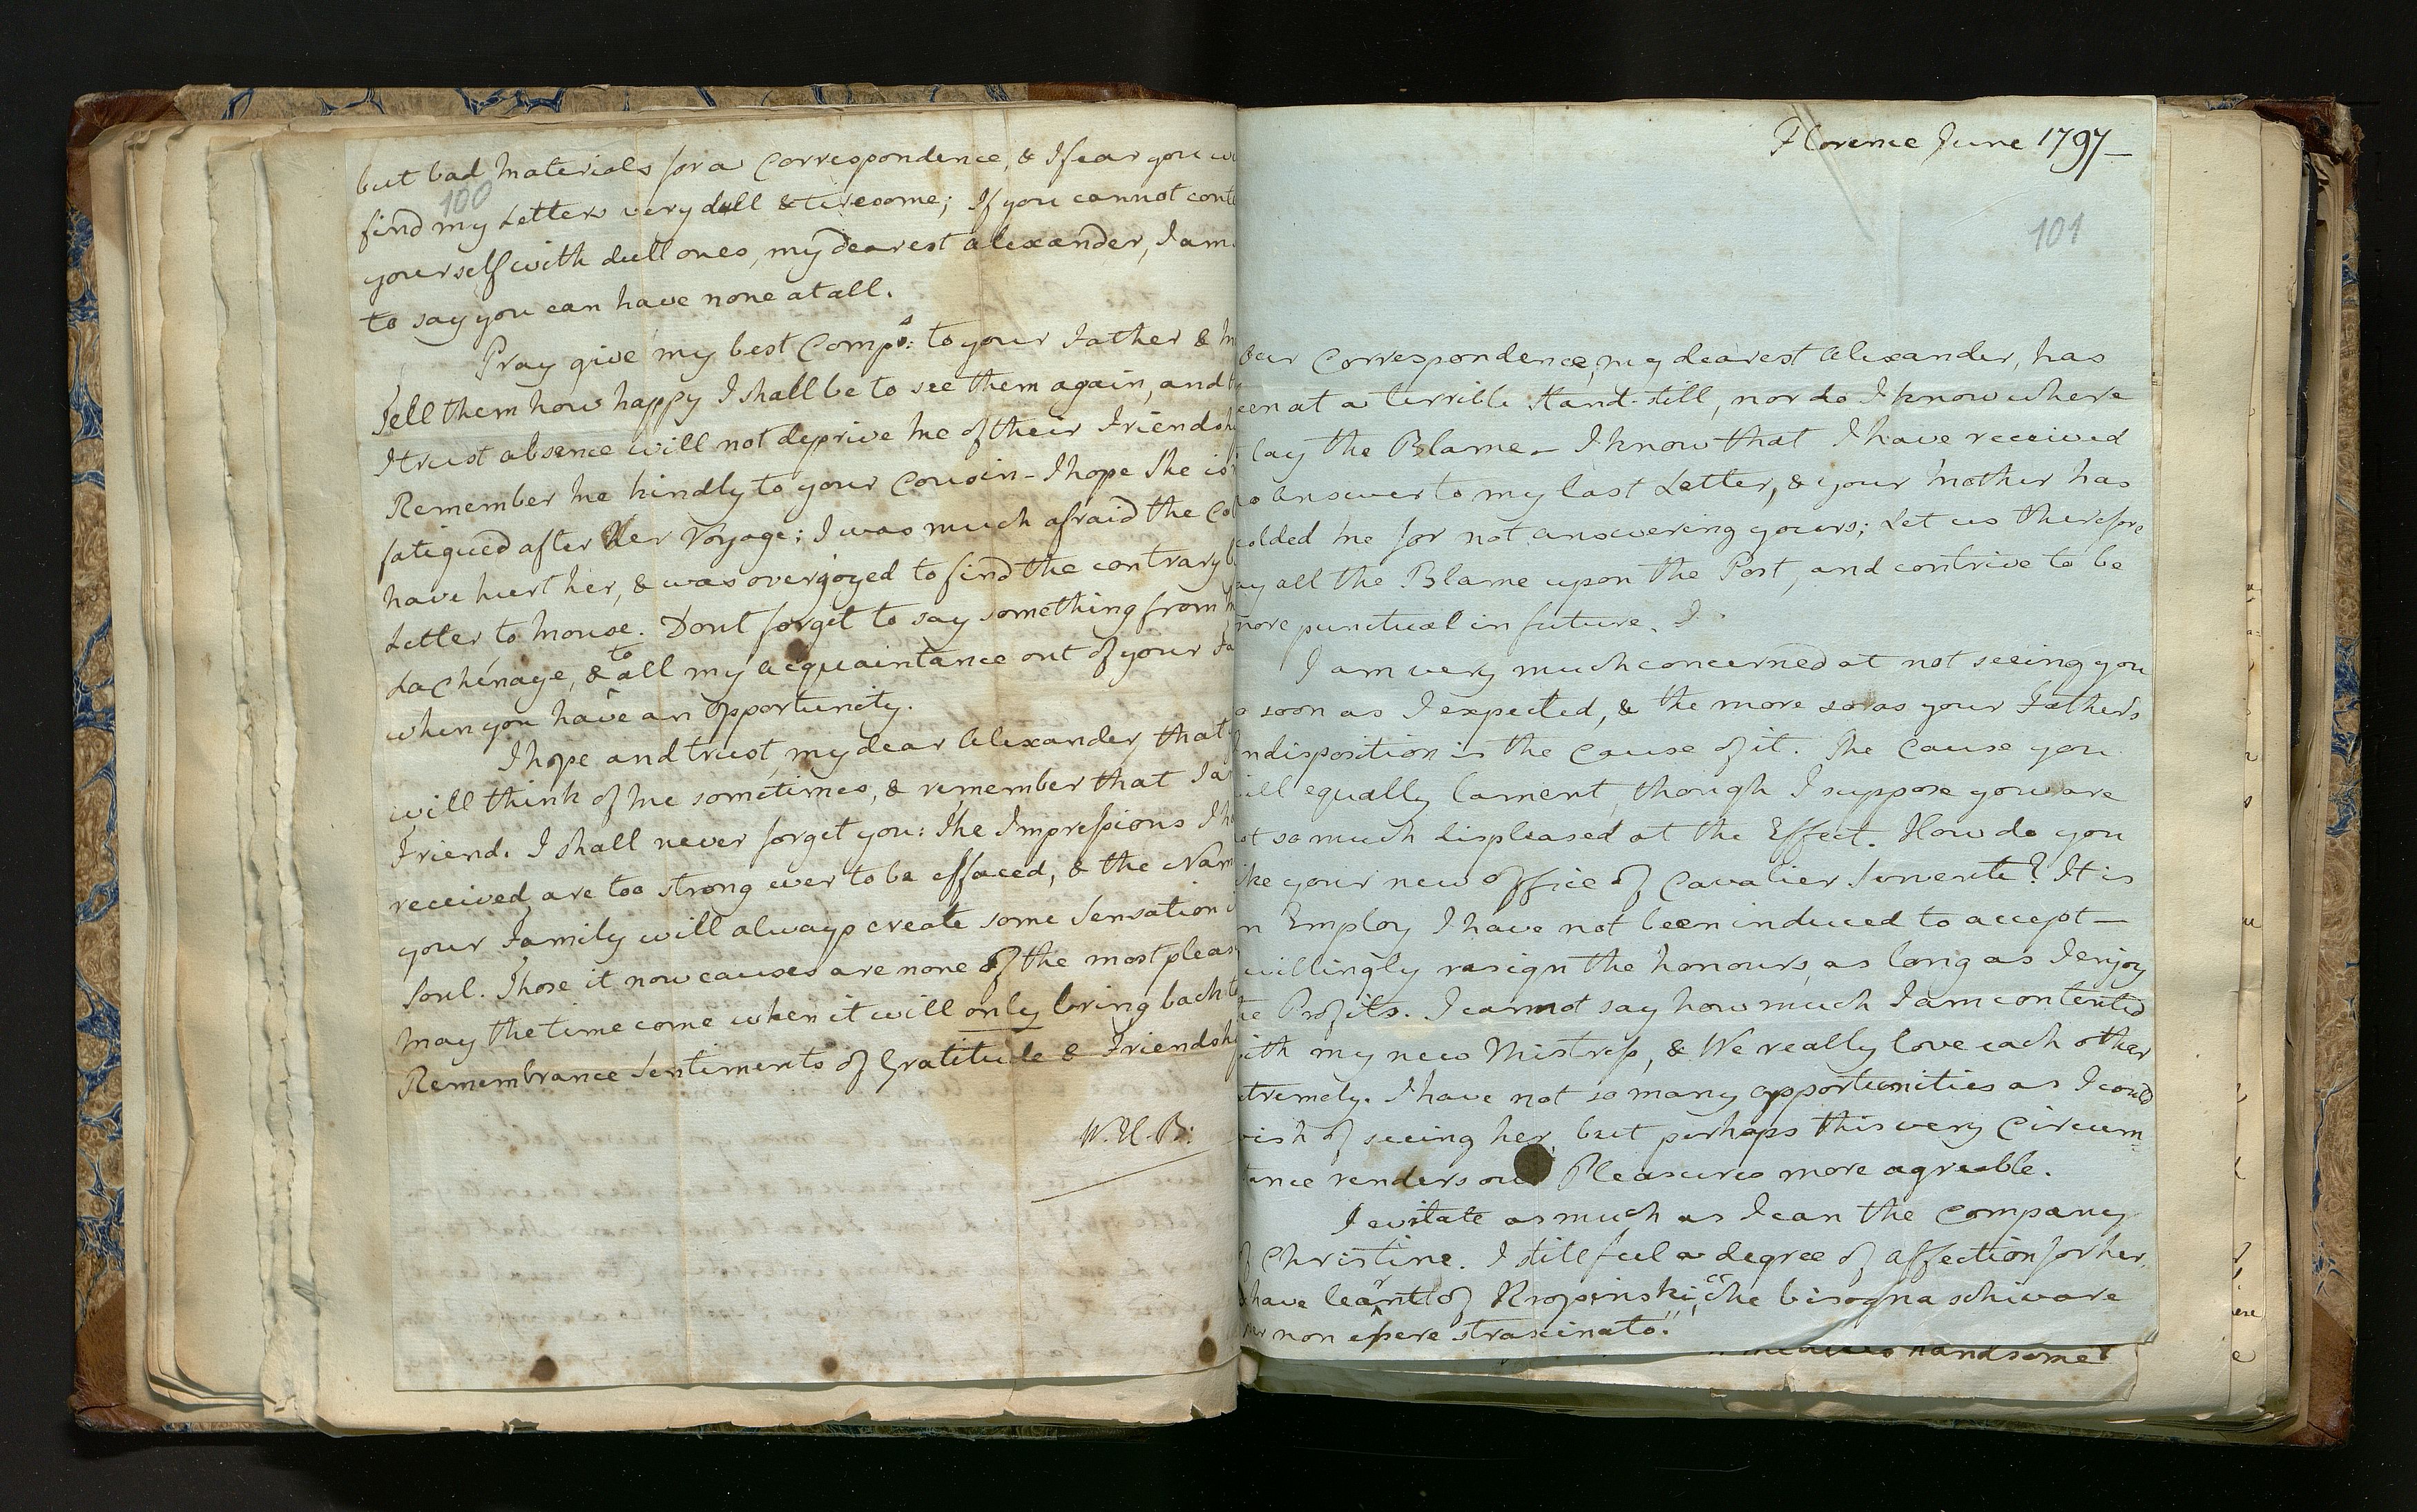 but bad Materials for a Correspondence, & I fear you w
100
find my Letters very dull & tiresome; If you cannot cont
yourself with dull ones, my dearest Alexander, I am
to say you can have none at all.
Pray give my best Comp.s: to your Father & M
Tell them how happy I shall be to see them again, and
I trust absence will not deprive me of their Friendsh
Remember me kindly to your Cousin - I hope She is
fatigued after Her Voyage; I was much afraid the Co
have hurt her, & was overjoyed to find the contrary b
Letter to Mouse. Dont forget to say something from M
La Chénaye, & to all my acquaintance out of your Fa
when you have an opportunity.
I hope and trust, my dear Alexander, that
will think of me sometimes, & remember that I a
Friend. I shall never forget you: The Impressions I h
received, are too strong ever to be effaced, & the Nam
your Family will always create some Sensation
Soul. Those it now causes are none of the most pleas
May the time come when it will only bring back t
Remembrance Sentiments of Gratitude & Friendsh
W. H. B:
Florence June 1797—
101
Our Correspondence, my dearest Alexander, has
een at a terrible Stand-still, nor do I know where
lay the Blame - I know that I have received
o Answer to my last Letter, & your Mother has
colded me for not answering yours; Let us therefore
ay all the Blame upon the Post, and contrive to be
more punctual in future. I
I am very much concerned at not seeing you
o soon as I expected, & the more so as your Father's
ndisposition is the Cause of it. The Cause you
ill equally lament, though I suppose you are
ot so much displeased at the Effect. How do you
like your new Office of Cavalier Servente? It is
n Employ I have not been induced to accept —
willingly resign the honours, as long as I enjoy
he Profits. I cannot say how much I am contented
with my new Mistress, & We really love each other
xtremely. I have not so many opportunities as I could
wish of seeing her, but perhaps this very Circum=
tance renders our Pleasures more agreable.
I evitate as much as I can the Company
of Christine. I still feel a degree of affection for her,
& have learnt of Kropinski, "che bisogna schivare
per non essere strascinato."
handsome